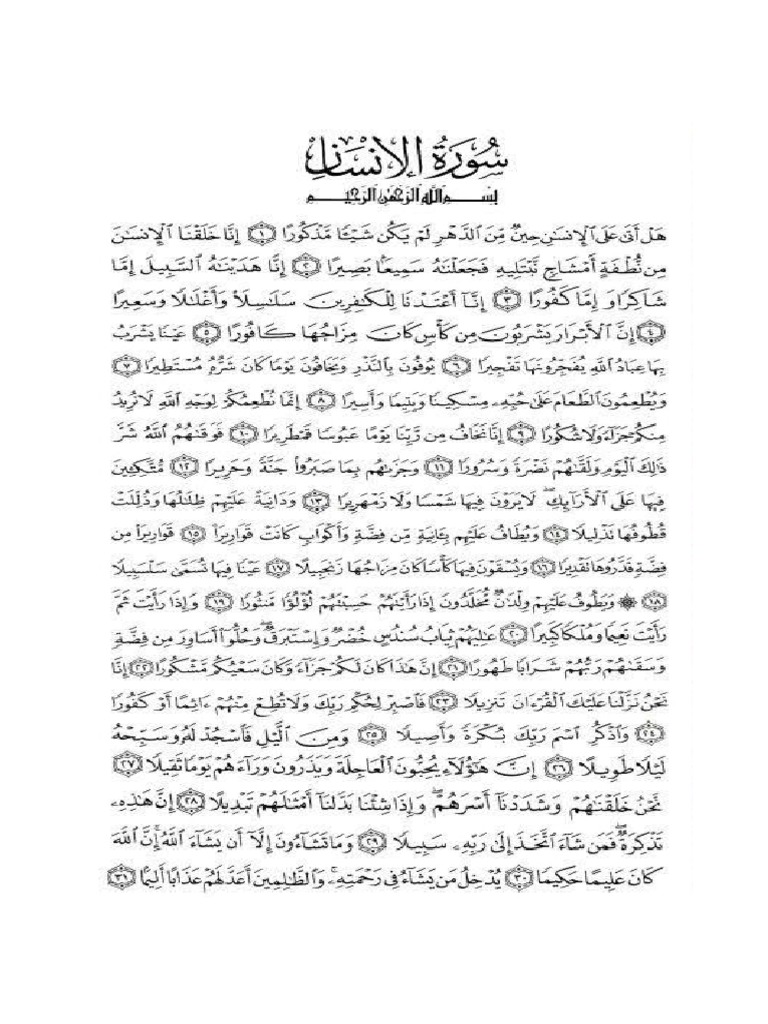 سُورَةُ الإِنسَانِ
بِسْمِ اللَّهِ الرَّحْمَٰنِ الرَّحِيمِ
هَلْ أَتَىٰ عَلَى ٱلْإِنسَٰنِ حِينٌ مِّنَ ٱلدَّهْرِ لَمْ يَكُن شَيْـًٔا مَّذْكُورًا ١ إِنَّا خَلَقْنَا ٱلْإِنسَٰنَ
مِن نُّطْفَةٍ أَمْشَاجٍ نَّبْتَلِيهِ فَجَعَلْنَٰهُ سَمِيعًۢا بَصِيرًا ٢ إِنَّا هَدَيْنَٰهُ ٱلسَّبِيلَ إِمَّا
شَاكِرًا وَإِمَّا كَفُورًا ٣ إِنَّآ أَعْتَدْنَا لِلْكَٰفِرِينَ سَلَٰسِلَا۟ وَأَغْلَٰلًا وَسَعِيرًا
٤ إِنَّ ٱلْأَبْرَارَ يَشْرَبُونَ مِن كَأْسٍ كَانَ مِزَاجُهَا كَافُورًا ٥ عَيْنًا يَشْرَبُ
بِهَا عِبَادُ ٱللَّهِ يُفَجِّرُونَهَا تَفْجِيرًا ٦ يُوفُونَ بِٱلنَّذْرِ وَيَخَافُونَ يَوْمًا كَانَ شَرُّهُۥ مُسْتَطِيرًا ٧
وَيُطْعِمُونَ ٱلطَّعَامَ عَلَىٰ حُبِّهِۦ مِسْكِينًا وَيَتِيمًا وَأَسِيرًا ٨ إِنَّمَا نُطْعِمُكُمْ لِوَجْهِ ٱللَّهِ لَا نُرِيدُ
مِنكُمْ جَزَآءً وَلَا شُكُورًا ٩ إِنَّا نَخَافُ مِن رَّبِّنَا يَوْمًا عَبُوسًا قَمْطَرِيرًا ١٠ فَوَقَىٰهُمُ ٱللَّهُ شَرَّ
ذَٰلِكَ ٱلْيَوْمِ وَلَقَّىٰهُمْ نَضْرَةً وَسُرُورًا ١١ وَجَزَىٰهُم بِمَا صَبَرُوا۟ جَنَّةً وَحَرِيرًا ١٢ مُّتَّكِـِٔينَ
فِيهَا عَلَى ٱلْأَرَآئِكِ ۖ لَا يَرَوْنَ فِيهَا شَمْسًا وَلَا زَمْهَرِيرًا ١٣ وَدَانِيَةً عَلَيْهِمْ ظِلَٰلُهَا وَذُلِّلَتْ
قُطُوفُهَا تَذْلِيلًا ١٤ وَيُطَافُ عَلَيْهِم بِـَٔانِيَةٍ مِّن فِضَّةٍ وَأَكْوَابٍ كَانَتْ قَوَارِيرَا۠ ١٥ قَوَارِيرَا۟ مِن
فِضَّةٍ قَدَّرُوهَا تَقْدِيرًا ١٦ وَيُسْقَوْنَ فِيهَا كَأْسًا كَانَ مِزَاجُهَا زَنجَبِيلًا ١٧ عَيْنًا فِيهَا تُسَمَّىٰ سَلْسَبِيلًا
١٨ ۞ وَيَطُوفُ عَلَيْهِمْ وِلْدَٰنٌ مُّخَلَّدُونَ إِذَا رَأَيْتَهُمْ حَسِبْتَهُمْ لُؤْلُؤًا مَّنثُورًا ١٩ وَإِذَا رَأَيْتَ ثَمَّ
رَأَيْتَ نَعِيمًا وَمُلْكًا كَبِيرًا ٢٠ عَٰلِيَهُمْ ثِيَابُ سُندُسٍ خُضْرٌ وَإِسْتَبْرَقٌ ۖ وَحُلُّوٓا۟ أَسَاوِرَ مِن فِضَّةٍ
وَسَقَىٰهُمْ رَبُّهُمْ شَرَابًا طَهُورًا ٢١ إِنَّ هَٰذَا كَانَ لَكُمْ جَزَآءً وَكَانَ سَعْيُكُم مَّشْكُورًا ٢٢ إِنَّا
نَحْنُ نَزَّلْنَا عَلَيْكَ ٱلْقُرْءَانَ تَنزِيلًا ٢٣ فَٱصْبِرْ لِحُكْمِ رَبِّكَ وَلَا تُطِعْ مِنْهُمْ ءَاثِمًا أَوْ كَفُورًا
٢٤ وَٱذْكُرِ ٱسْمَ رَبِّكَ بُكْرَةً وَأَصِيلًا ٢٥ وَمِنَ ٱلَّيْلِ فَٱسْجُدْ لَهُۥ وَسَبِّحْهُ
لَيْلًا طَوِيلًا ٢٦ إِنَّ هَٰٓؤُلَآءِ يُحِبُّونَ ٱلْعَاجِلَةَ وَيَذَرُونَ وَرَآءَهُمْ يَوْمًا ثَقِيلًا ٢٧
نَّحْنُ خَلَقْنَٰهُمْ وَشَدَدْنَآ أَسْرَهُمْ ۖ وَإِذَا شِئْنَا بَدَّلْنَآ أَمْثَٰلَهُمْ تَبْدِيلًا ٢٨ إِنَّ هَٰذِهِۦ
تَذْكِرَةٌ ۖ فَمَن شَآءَ ٱتَّخَذَ إِلَىٰ رَبِّهِۦ سَبِيلًا ٢٩ وَمَا تَشَآءُونَ إِلَّآ أَن يَشَآءَ ٱللَّهُ ۚ إِنَّ ٱللَّهَ
كَانَ عَلِيمًا حَكِيمًا ٣٠ يُدْخِلُ مَن يَشَآءُ فِى رَحْمَتِهِۦ ۚ وَٱلظَّٰلِمِينَ أَعَدَّ لَهُمْ عَذَابًا أَلِيمًۢا ٣١